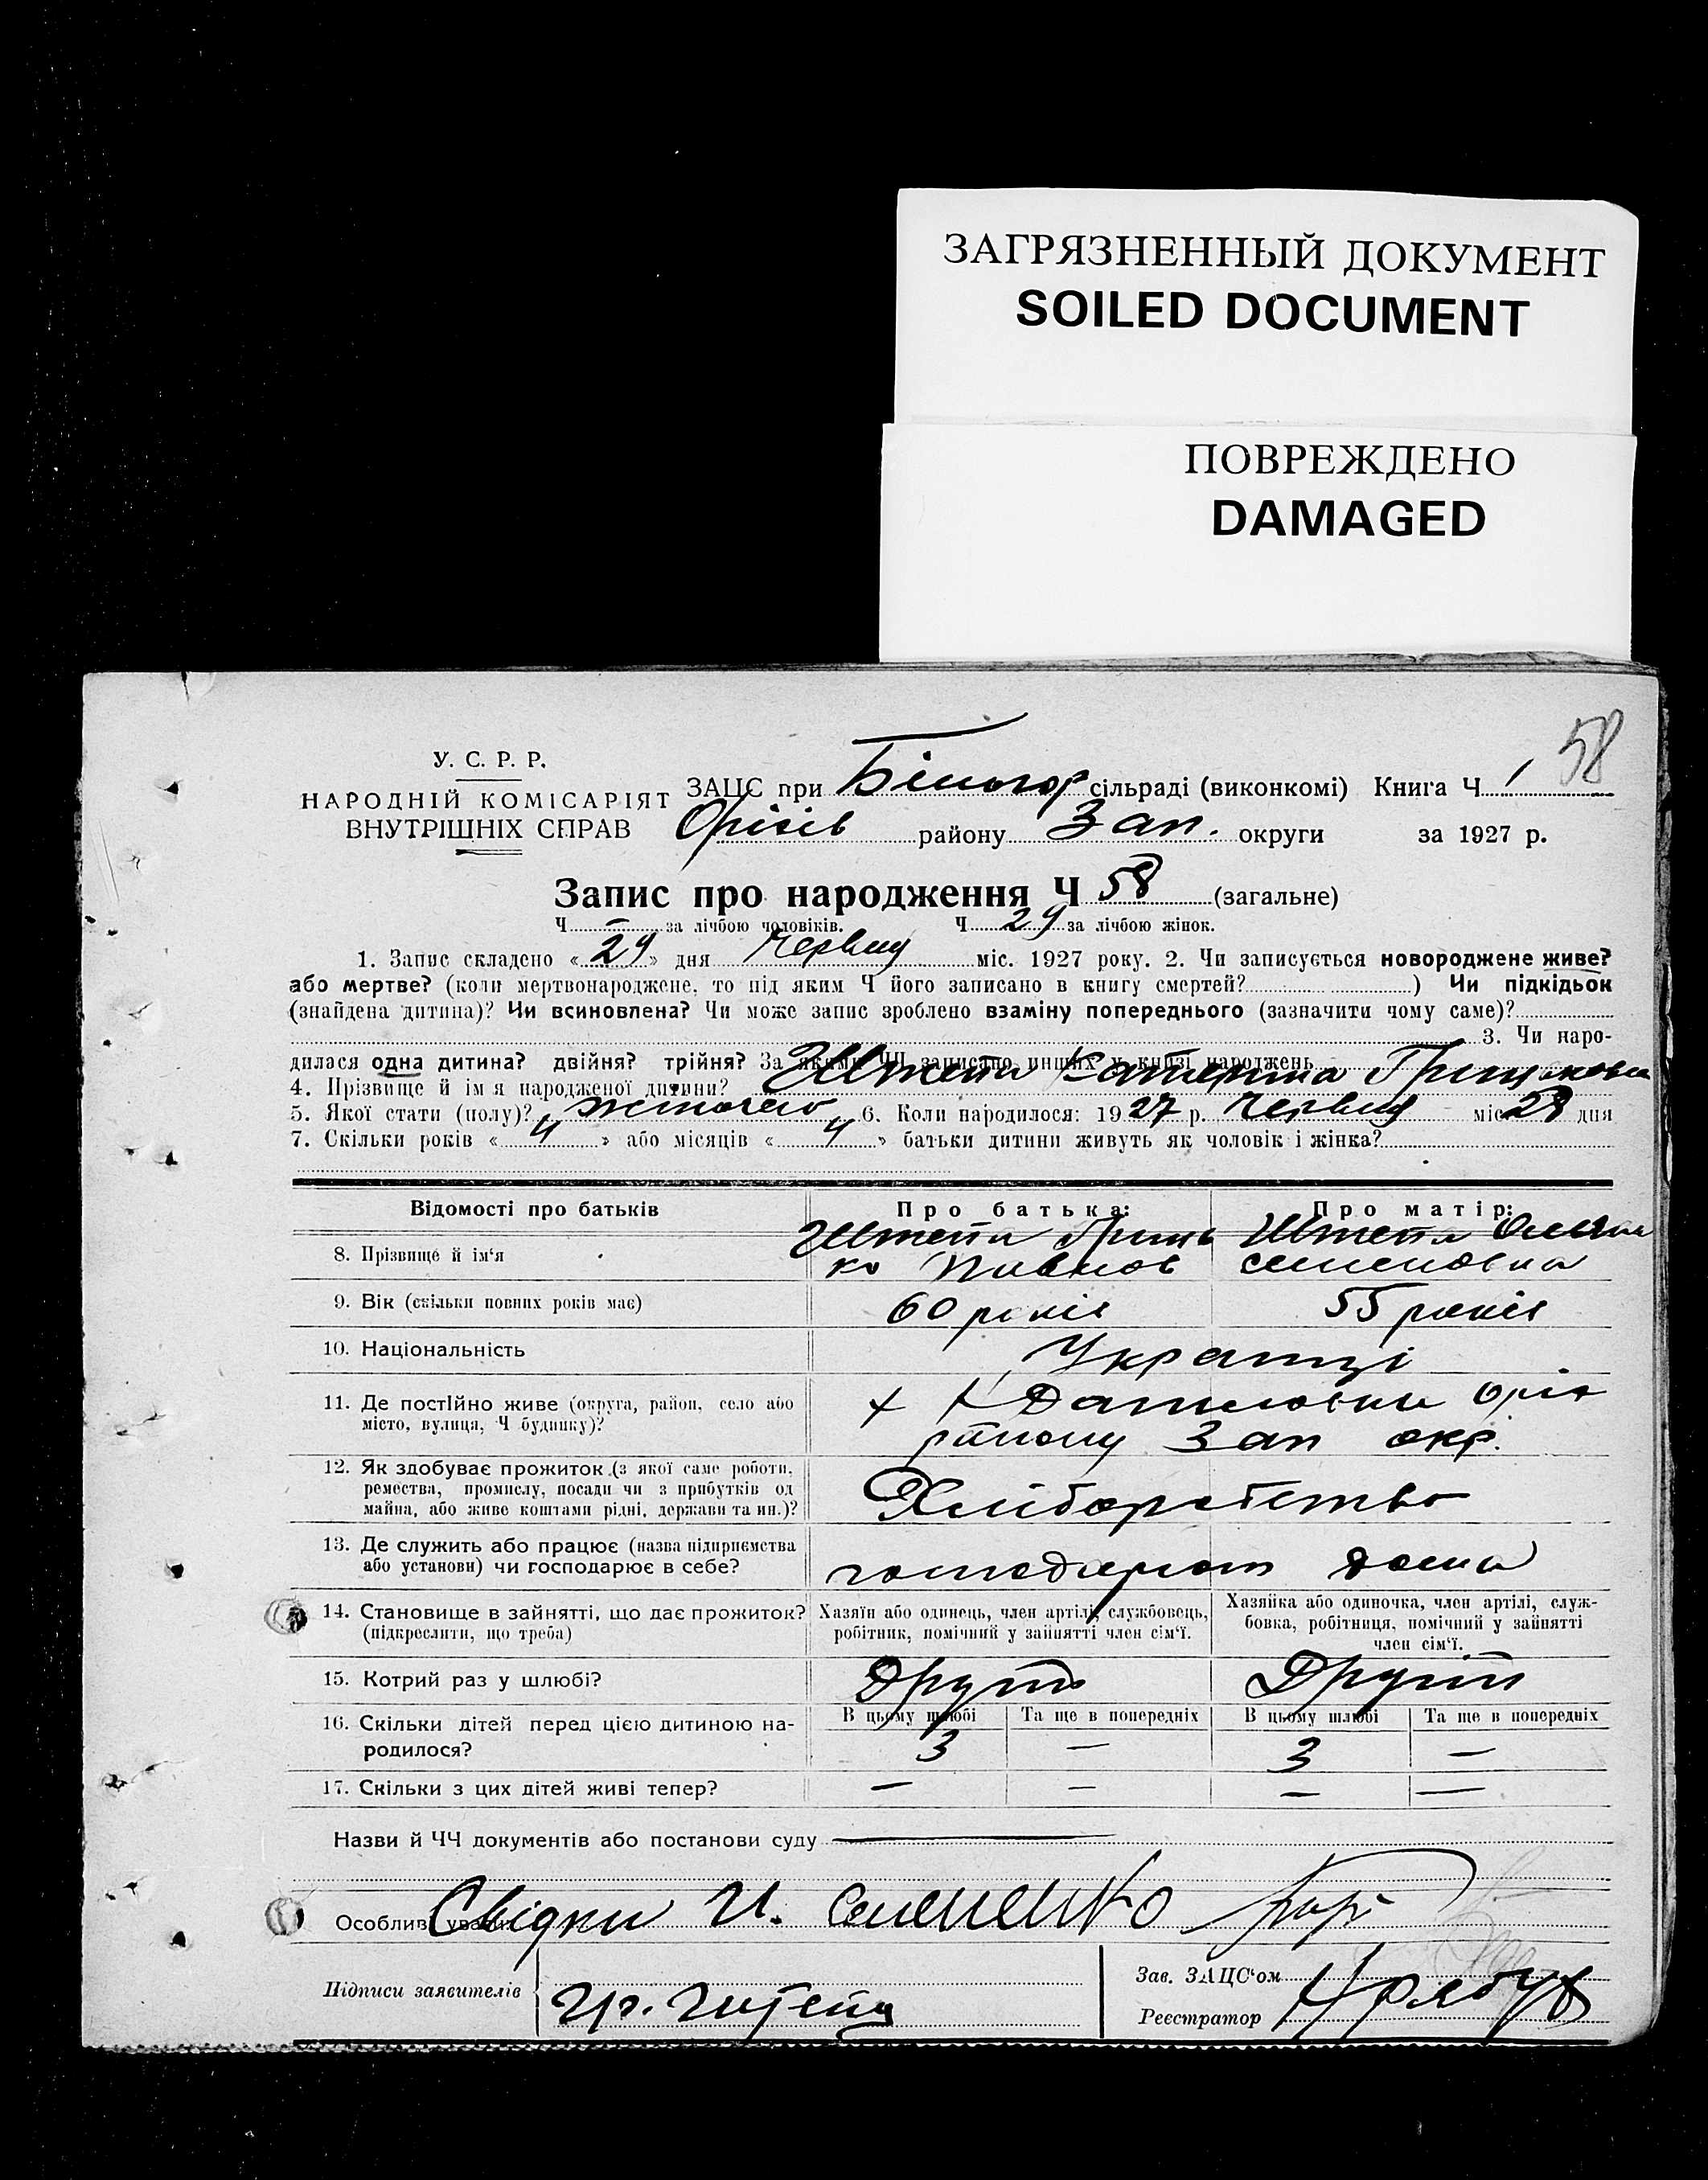 ЗАГРЯЗНЕННЫЙ ДОКУМЕНТ
SOILED DOCUMENT
ПОВРЕЖДЕНО
DAMAGED
58
У. С. Р. Р.
НАРОДНІЙ КОМІСАРІЯТ
ВНУТРІШНІХ СПРАВ
ЗАЦС при Білогор сільраді (виконкомі) Книга Ч 1
Оріхів району Зап. округи за 1927 р.
Запис про народження Ч 58 (загальне)
Ч — за лічбою чоловіків. Ч 29 за лічбою жінок.
1. Запис складено « 29 » дня Червня міс. 1927 року. 2. Чи записується новороджене живе?
або мертве? (коли мертвонароджене, то під яким Ч його записано в книгу смертей? ) Чи підкідьок
(знайдена дитина)? Чи всиновлена? Чи може запис зроблено взаміну попереднього (зазначити чому саме)?
3. Чи наро-
дилася одна дитина? двійня? трійня? За якими ЧЧ записано инших у книзі народжень
4. Прізвище й ім'я народженої дитини? Штепа Катерина
5. Якої стати (полу)? жіночого 6. Коли народилося: 1927 р. Червня міс 28 дня
7. Скільки років « 4 » або місяців « 4 » батьки дитини живуть як чоловік і жінка?
Відомості про батьків
Про батька:
Про матір:
8. Прізвище й ім'я
Штепа Гринь
ко Павлов
Штепа
семеновна
9. Вік (скільки повних років має)
60 років
55 років
10. Національність
Українці
11. Де постійно живе (округа, район, село або
місто, вулиця, Ч будинку)?
х Данилівки Оріх
району Зап окр.
12. Як здобуває прожиток (з якої саме роботи,
ремества, промислу, посади чи з прибутків од
майна, або живе коштами рідні, держави та ин.)?
Хліборобство
13. Де служить або працює (назва підприємства
або установи) чи господарює в себе?
дома
14. Становище в зайнятті, що дає прожиток?
(підкреслити, що треба)
Хазяїн або одинець, член артілі, службовець,
робітник, помічний у зайнятті член сім'ї.
Хазяйка або одиночка, член артілі, служ-
бовка, робітниця, помічний у зайнятті
член сім'ї.
15. Котрий раз у шлюбі?
Другий
Другий
16. Скільки дітей перед цією дитиною на-
родилося?
В цьому шлюбі
Та ще в попередніх
В цьому шлюбі
Та ще в попередніх
3 — 3 —
17. Скільки з цих дітей живі тепер?
— — — —
Назви й ЧЧ документів або постанови суду
Особливі уваги: Свідки И. Семененко
Підписи заявителів
Гр. Штепа
Зав. ЗАЦС'ом
Реєстратор